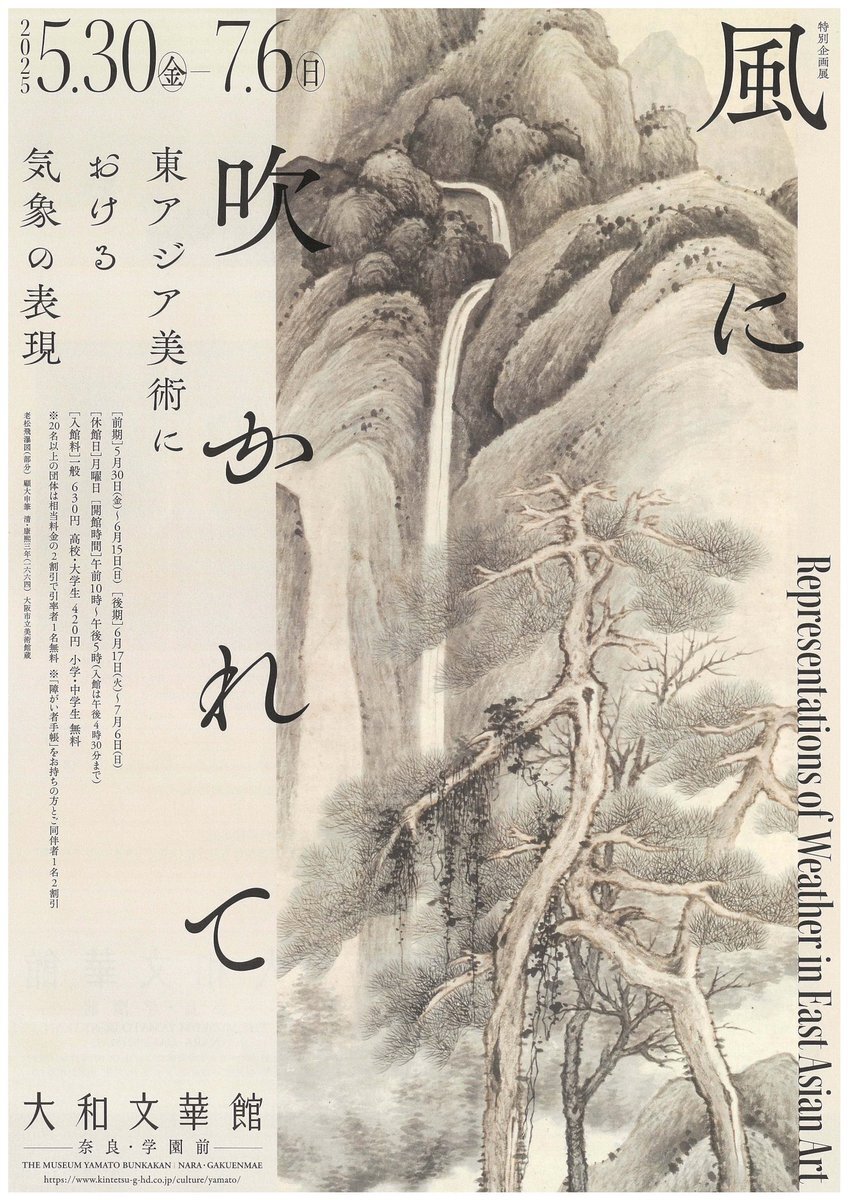 特別企画展
風に
吹かれて
東アジア美術に
おける
気象の表現
2025
5.30(金)—7.6(日)
Representations of Weather in East Asian Art
[前期]5月30日(金)〜6月15日(日) [後期]6月17日(火)〜7月6日(日)
[休館日]月曜日 [開館時間]午前10時〜午後5時(入館は午後4時30分まで)
[入館料]一般 630円 高校・大学生 420円 小学・中学生 無料
※20名以上の団体は相当料金の2割引で引率者1名無料 ※「障がい者手帳」をお持ちの方とご同伴者1名2割引
老松飛瀑図(部分) 顧大申筆 清・康熙三年(一六六四) 大阪市立美術館蔵
大和文華館
奈良・学園前
THE MUSEUM YAMATO BUNKAKAN | NARA・GAKUENMAE
https://www.kintetsu-g-hd.co.jp/culture/yamato/